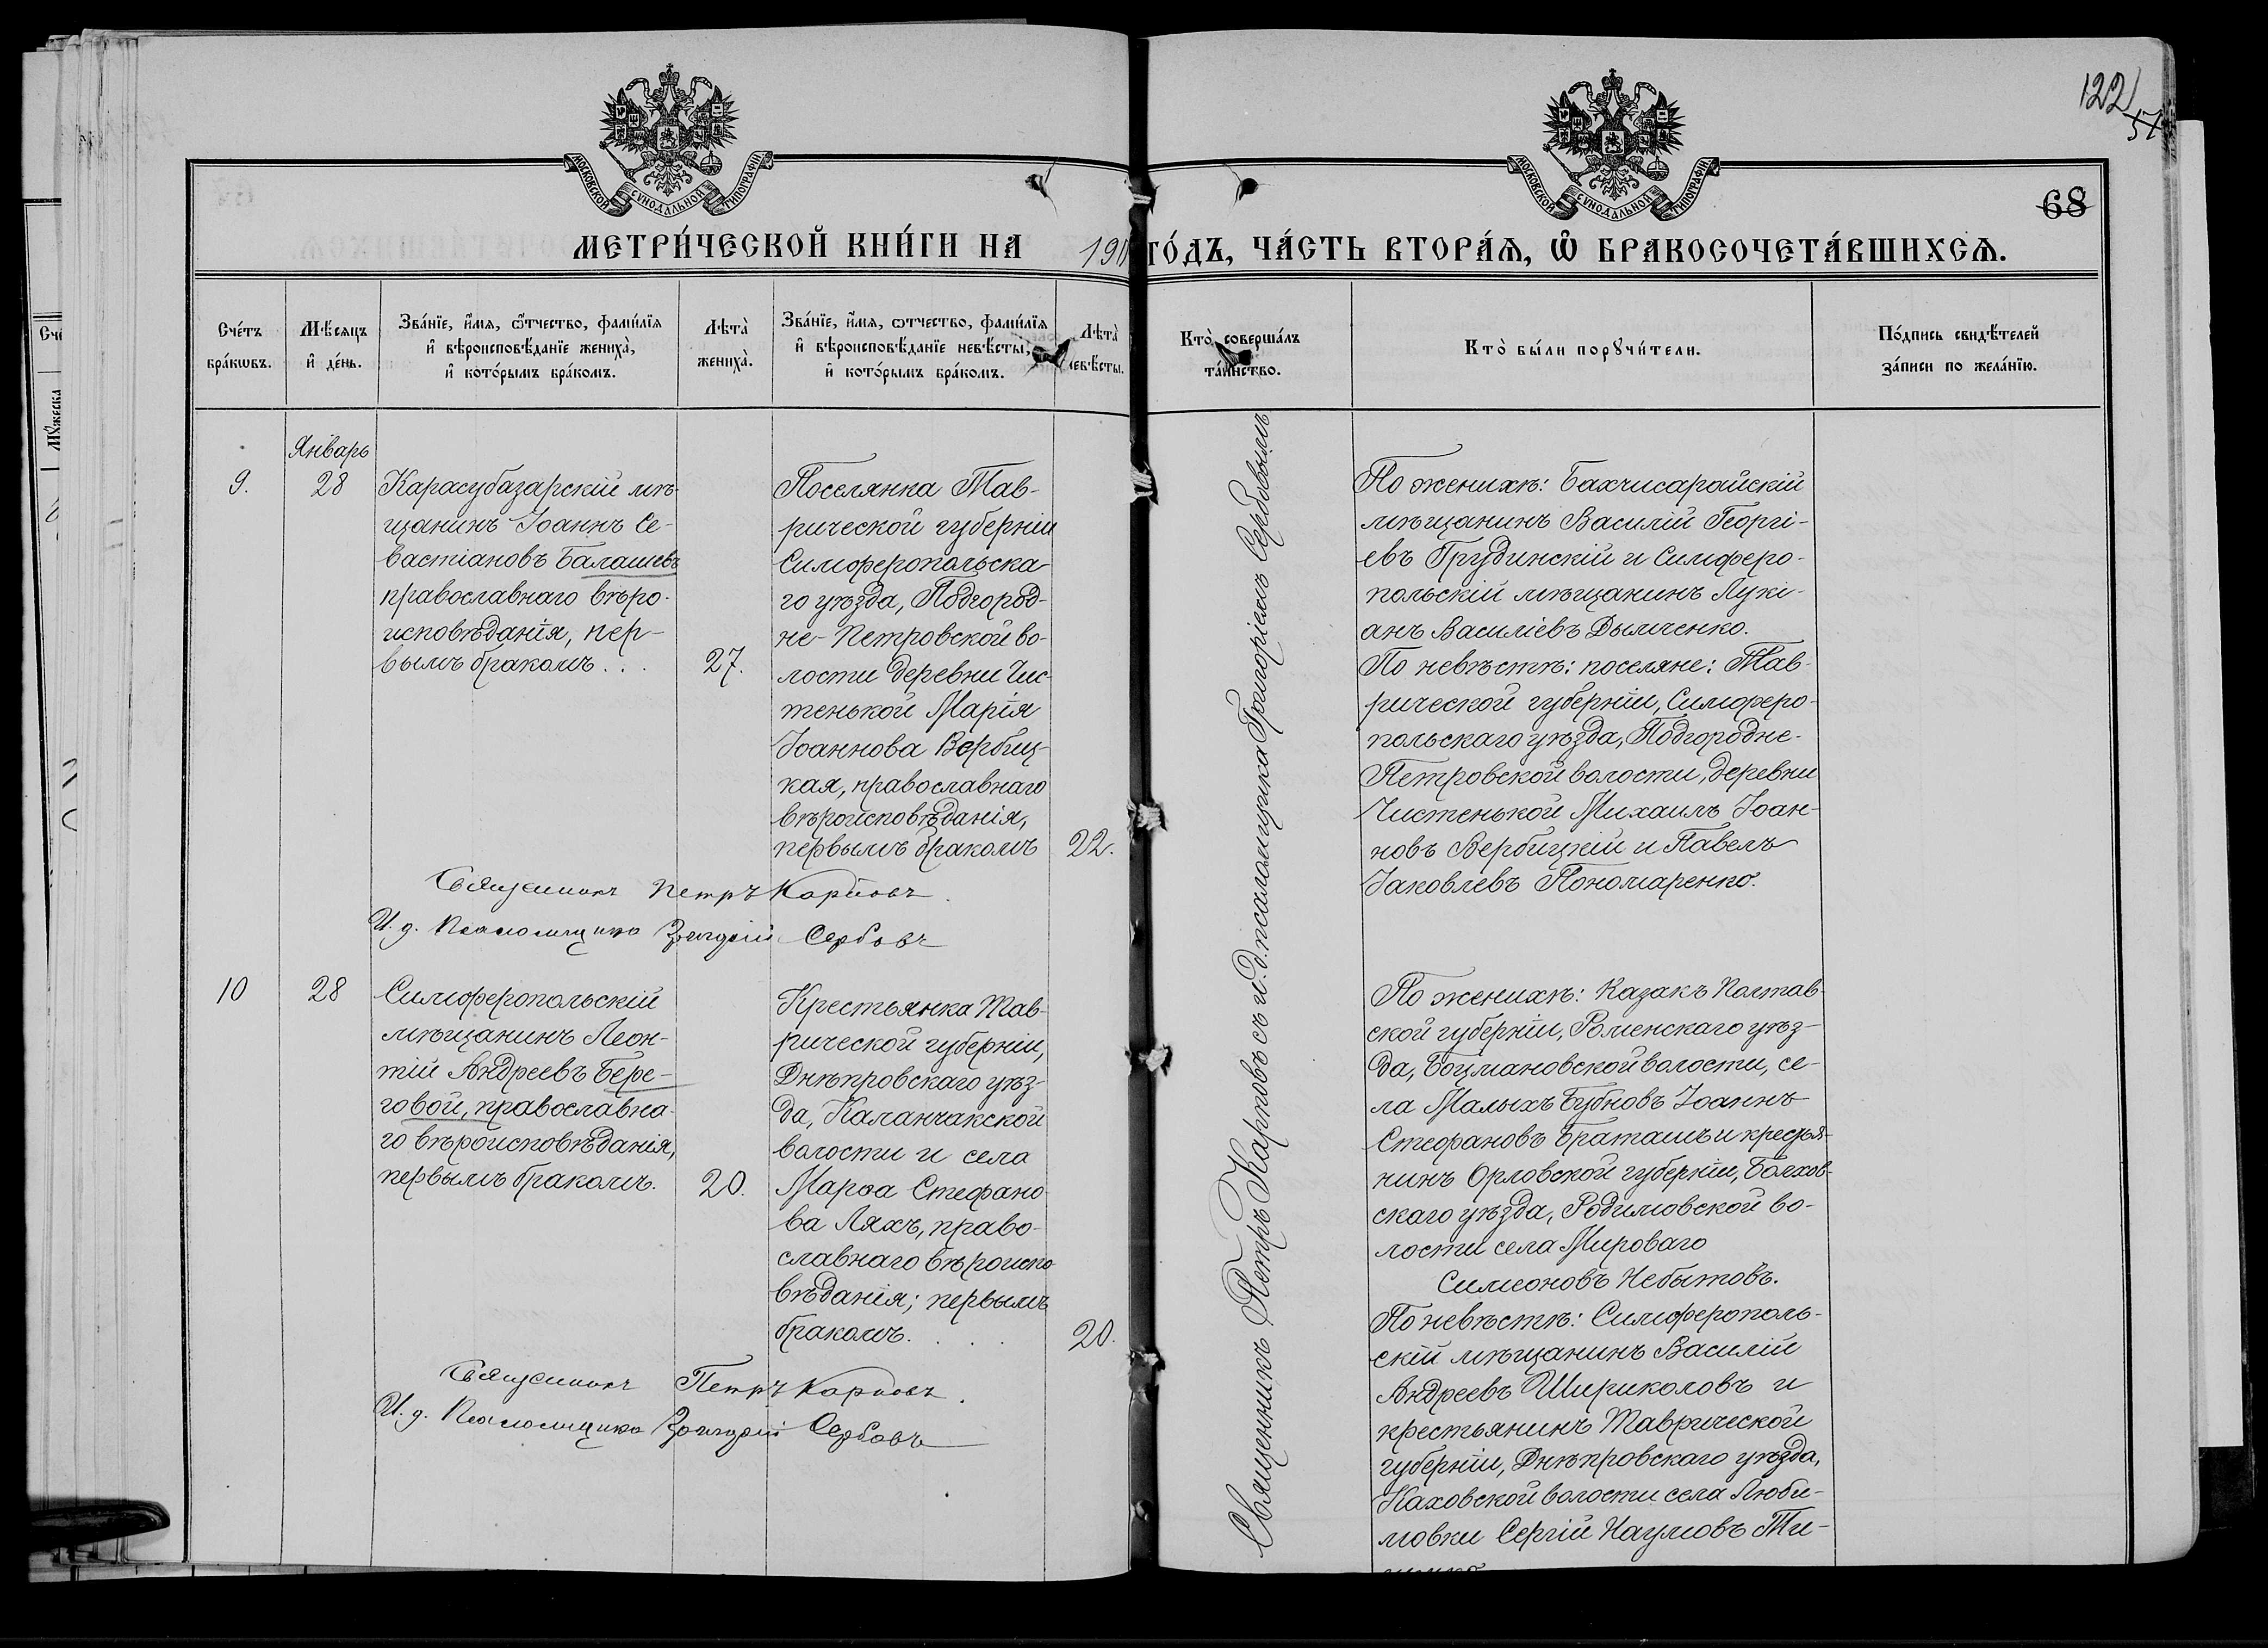 122
51
МОСКОВСКОЙ СУНОДАЛЬНОЙ ТИПОГРАФІИ
МОСКОВСКОЙ СУНОДАЛЬНОЙ ТИПОГРАФІИ
68
МЕТРИ́ЧЕСКОЙ КНИ́ГИ НА 191
ГО́ДЪ, ЧА́СТЬ ВТОРА́Ѧ, Ѽ БРАКОСОЧЕТА́ВШИХСѦ.
Сче́тъ
бра́кѡвъ.
Мѣ́сяцъ
и҆ де́нь.
Зва́нїе, и҆́мѧ, ѻ҆́тчество, фами́лїѧ
и҆ вѣроисповѣ́данїе жениха̀,
и҆ кото́рымъ бра́комъ.
Лѣта̀
жениха̀.
Зва́нїе, и҆́мѧ, ѻтчество, фами́лїѧ
и҆ вѣроисповѣ́данїе невѣ́сты,
и҆ кото́рымъ бра́комъ.
Лѣта̀
невѣ́сты.
Кто̀ соверша́лъ
та́инство.
Кто̀ бы́ли порꙋчи́тели.
По́дпись свидѣ́телей
за́писи по жела́нїю.
Январь
9.
28
Карасубазарскій мѣ-
щанинъ Іоаннъ Се-
вастіановъ Балашевъ
православнаго вѣро-
исповѣданія, пер-
вымъ бракомъ . . .
27.
Поселянка Тав-
рической губерніи
Симферопольска-
го уѣзда, Подгород-
не-Петровской во-
лости деревни Чис-
тенькой Марія
Іоаннова Вербиц-
кая, православнаго
вѣроисповѣданія,
первымъ бракомъ
22.
Священникъ Петръ Карповъ.
И. д. Псаломщика Григорій Сербовъ
Священникъ Петръ Карповъ съ и. д. псаломщика Григоріемъ Сербовымъ
По женихѣ: Бахчисарайскій
мѣщанинъ Василій Георгі-
евъ Грудинскій и Симферо-
польскій мѣщанинъ Лукі-
анъ Василіевъ Дымченко.
По невѣстѣ: поселяне: Тав-
рической губерніи, Симферо-
польскаго уѣзда, Подгородне-
Петровской волости, деревни
Чистенькой Михаилъ Іоан-
новъ Вербицкій и Павелъ
Іаковлевъ Пономаренко.
10
28
Симферопольскій
мѣщанинъ Леон-
тій Андреевъ Бере-
говой, православна-
го вѣроисповѣданія,
первымъ бракомъ.
20.
Крестьянка Тав-
рической губерніи,
Днѣпровскаго уѣз-
да, Каланчакской
волости и села
Марѳа Стефано-
ва Ляхъ, право-
славнаго вѣроиспо-
вѣданія; первымъ
бракомъ. . . .
20.
Священникъ Петръ Карповъ.
И. д. Псаломщика Григорій Сербовъ
По женихѣ: Казакъ Полтав-
ской губерніи, Роменскаго уѣз-
да, Боцмановской волости, се-
ла Малыхъ Бубновъ Іоаннъ
Стефановъ Браташъ и крестья-
нинъ Орловской губерніи, Болхов-
скаго уѣзда, Родимовской во-
лости села Мироваго
Симеоновъ Небытовъ.
По невѣстѣ: Симферополь-
скій мѣщанинъ Василій
Андреевъ Шириколовъ и
крестьянинъ Таврической
губерніи, Днѣпровскаго уѣзда,
Каховской волости села Люби-
мовки Сергій Наумовъ Ти-